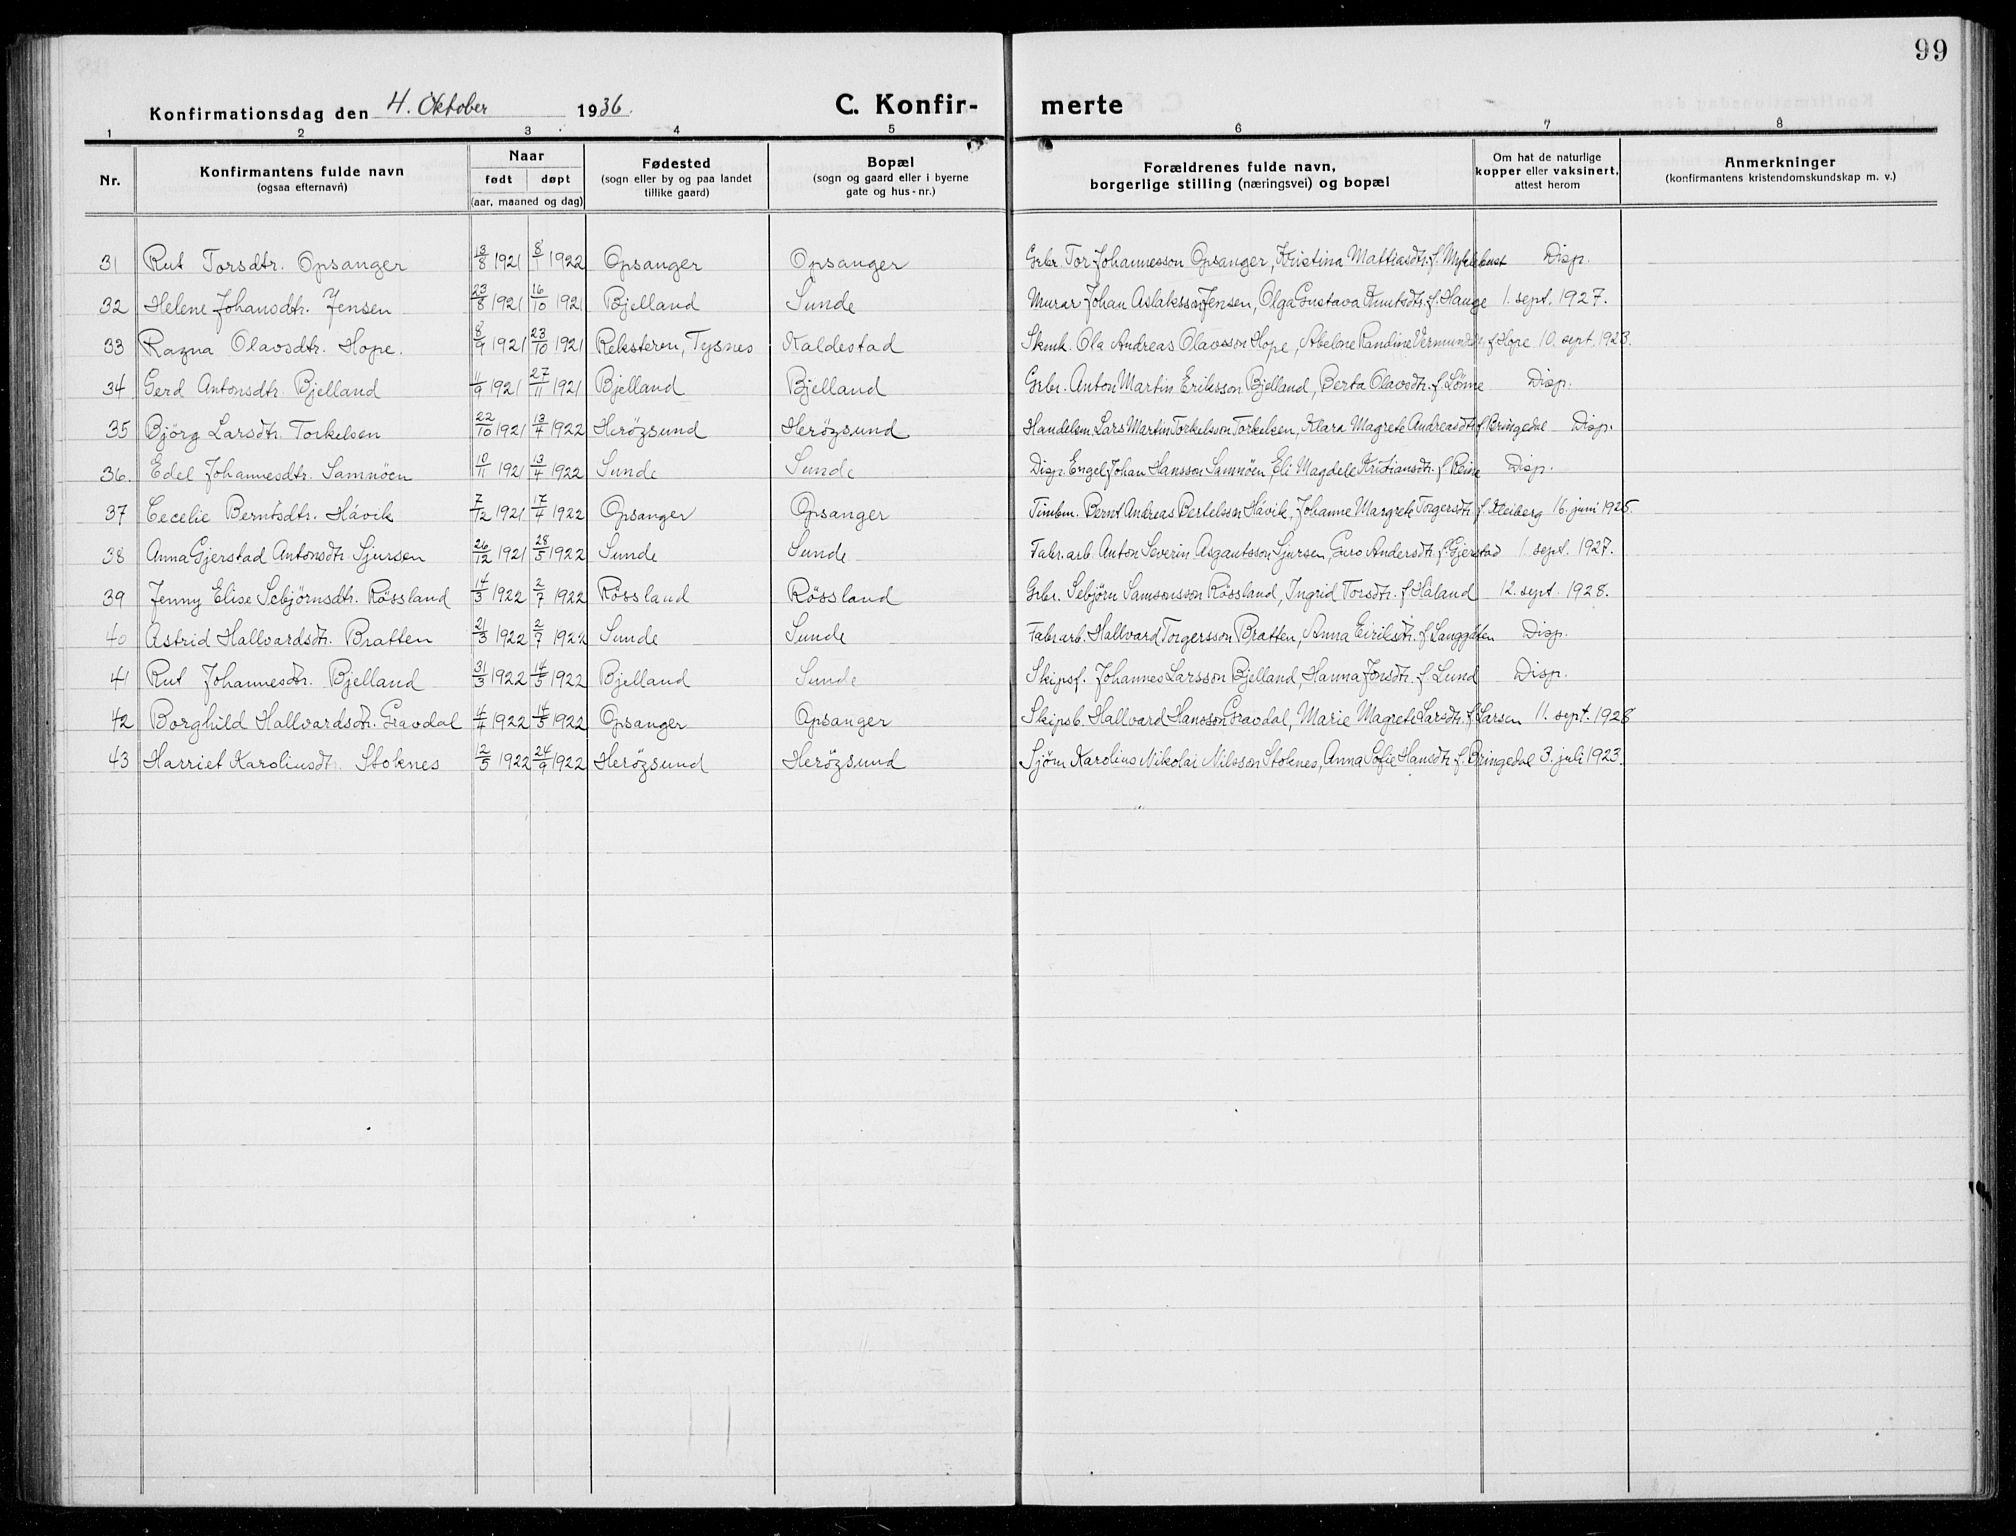 99
Konfirmationsdag den 4. Oktober 1936. C. Konfir- merte
1 2 3 4 5 6 7 8
Nr. Konfirmantens fulde navn (ogsaa efternavn) Naar født døpt (aar, maaned og dag) Fødested (sogn eller by og paa landet tillike gaard) Bopæl (sogn og gaard eller i byerne gate og hus-nr.) Forældrenes fulde navn, borgerlige stilling (næringsvei) og bopæl Om hat de naturlige kopper eller vaksinert, attest herom Anmerkninger (konfirmantens kristendomskundskap m. v.)
31 Rut Torsdtr. Opsanger 13/8 1921 8/1 1922 Opsanger Opsanger Grbr. Tor Johannesson Opsanger, Kristina Mattiasdtr. f. Myklebust Disp.
32 Helene Johansdtr. Jensen 23/8 1921 16/10 1921 Bjelland Sunde Murar Johan Aslaksson Jensen, Olga Gustava Knutsdtr. f. Hauge 1. sept. 1927.
33 Ragna Olavsdtr. Hope. 8/9 1921 23/10 1921 Reksteren, Tysnes Kaldestad Skmk. Ola Andreas Olavsson Hope, Abelone Randine Vermundsdtr. f. Hope 10. sept. 1923.
34 Gerd Antonsdtr. Bjelland 11/9 1921 27/11 1921 Bjelland Bjelland Grbr. Anton Martin Eriksson Bjelland, Berta Olavsdtr. f. Lönne Disp.
35 Björg Larsdtr. Torkelsen 22/10 1921 13/4 1922 Herøysund Herøysund Handelsm. Lars Martin Torkelsson Torkelsen, Klara Magrete Andreasdtr. f. Bringedal Disp.
36. Edel Johannesdtr. Samnöen 10/11 1921 13/4 1922 Sunde Sunde Disp. Engel Johan Hansson Samnöen, Eli Magdele Kristiansdtr. f. Reine Disp.
37 Cecelie Berntsdtr. Håvik 7/12 1921 17/4 1922 Opsanger Opsanger Timbm. Bernt Andreas Bertelsson Håvik, Johanne Margrete Torgersdtr. f. Kleiberg 16. juni 1925
38 Anna Gjerstad Antonsdtr. Sjursen 26/12 1921 28/5 1922 Sunde Sunde Fabr.arb. Anton Severin Asgautsson Sjursen, Guro Andersdtr. f. Gjerstad 1. sept. 1927.
39 Jenny Elise Sebjörnsdtr. Røssland 14/3 1922 2/7 1922 Røssland Røssland Grbr. Sebjörn Samsonsson Røssland, Ingrid Torsdtr. f. Håland 12. sept. 1928.
40 Astrid Hallvardsdtr. Bratten 21/3 1922 2/7 1922 Sunde Sunde Fabr.arb. Hallvard Torgersson Bratten, Anna Eiriksdtr. f. Langgåten Disp.
41 Rut Johannesdtr. Bjelland 31/3 1922 14/5 1922 Bjelland Sunde Skipsf. Johannes Larsson Bjelland, Hanna Jonsdtr. f. Lund Disp.
42 Borghild Hallvardsdtr. Gravdal 4/4 1922 14/5 1922 Opsanger Opsanger Skipsb. Hallvard Hansson Gravdal, Marie Magrete Larsdtr. f. Larsen 11. sept. 1928
43 Harriet Karoliusdtr. Stoknes 12/5 1922 24/9 1922 Herøysund Herøysund Sjöm. Karolius Nikolai Nilsson Stoknes, Anna Sofie Hansdtr. f. Bringedal 3. juli 1923.